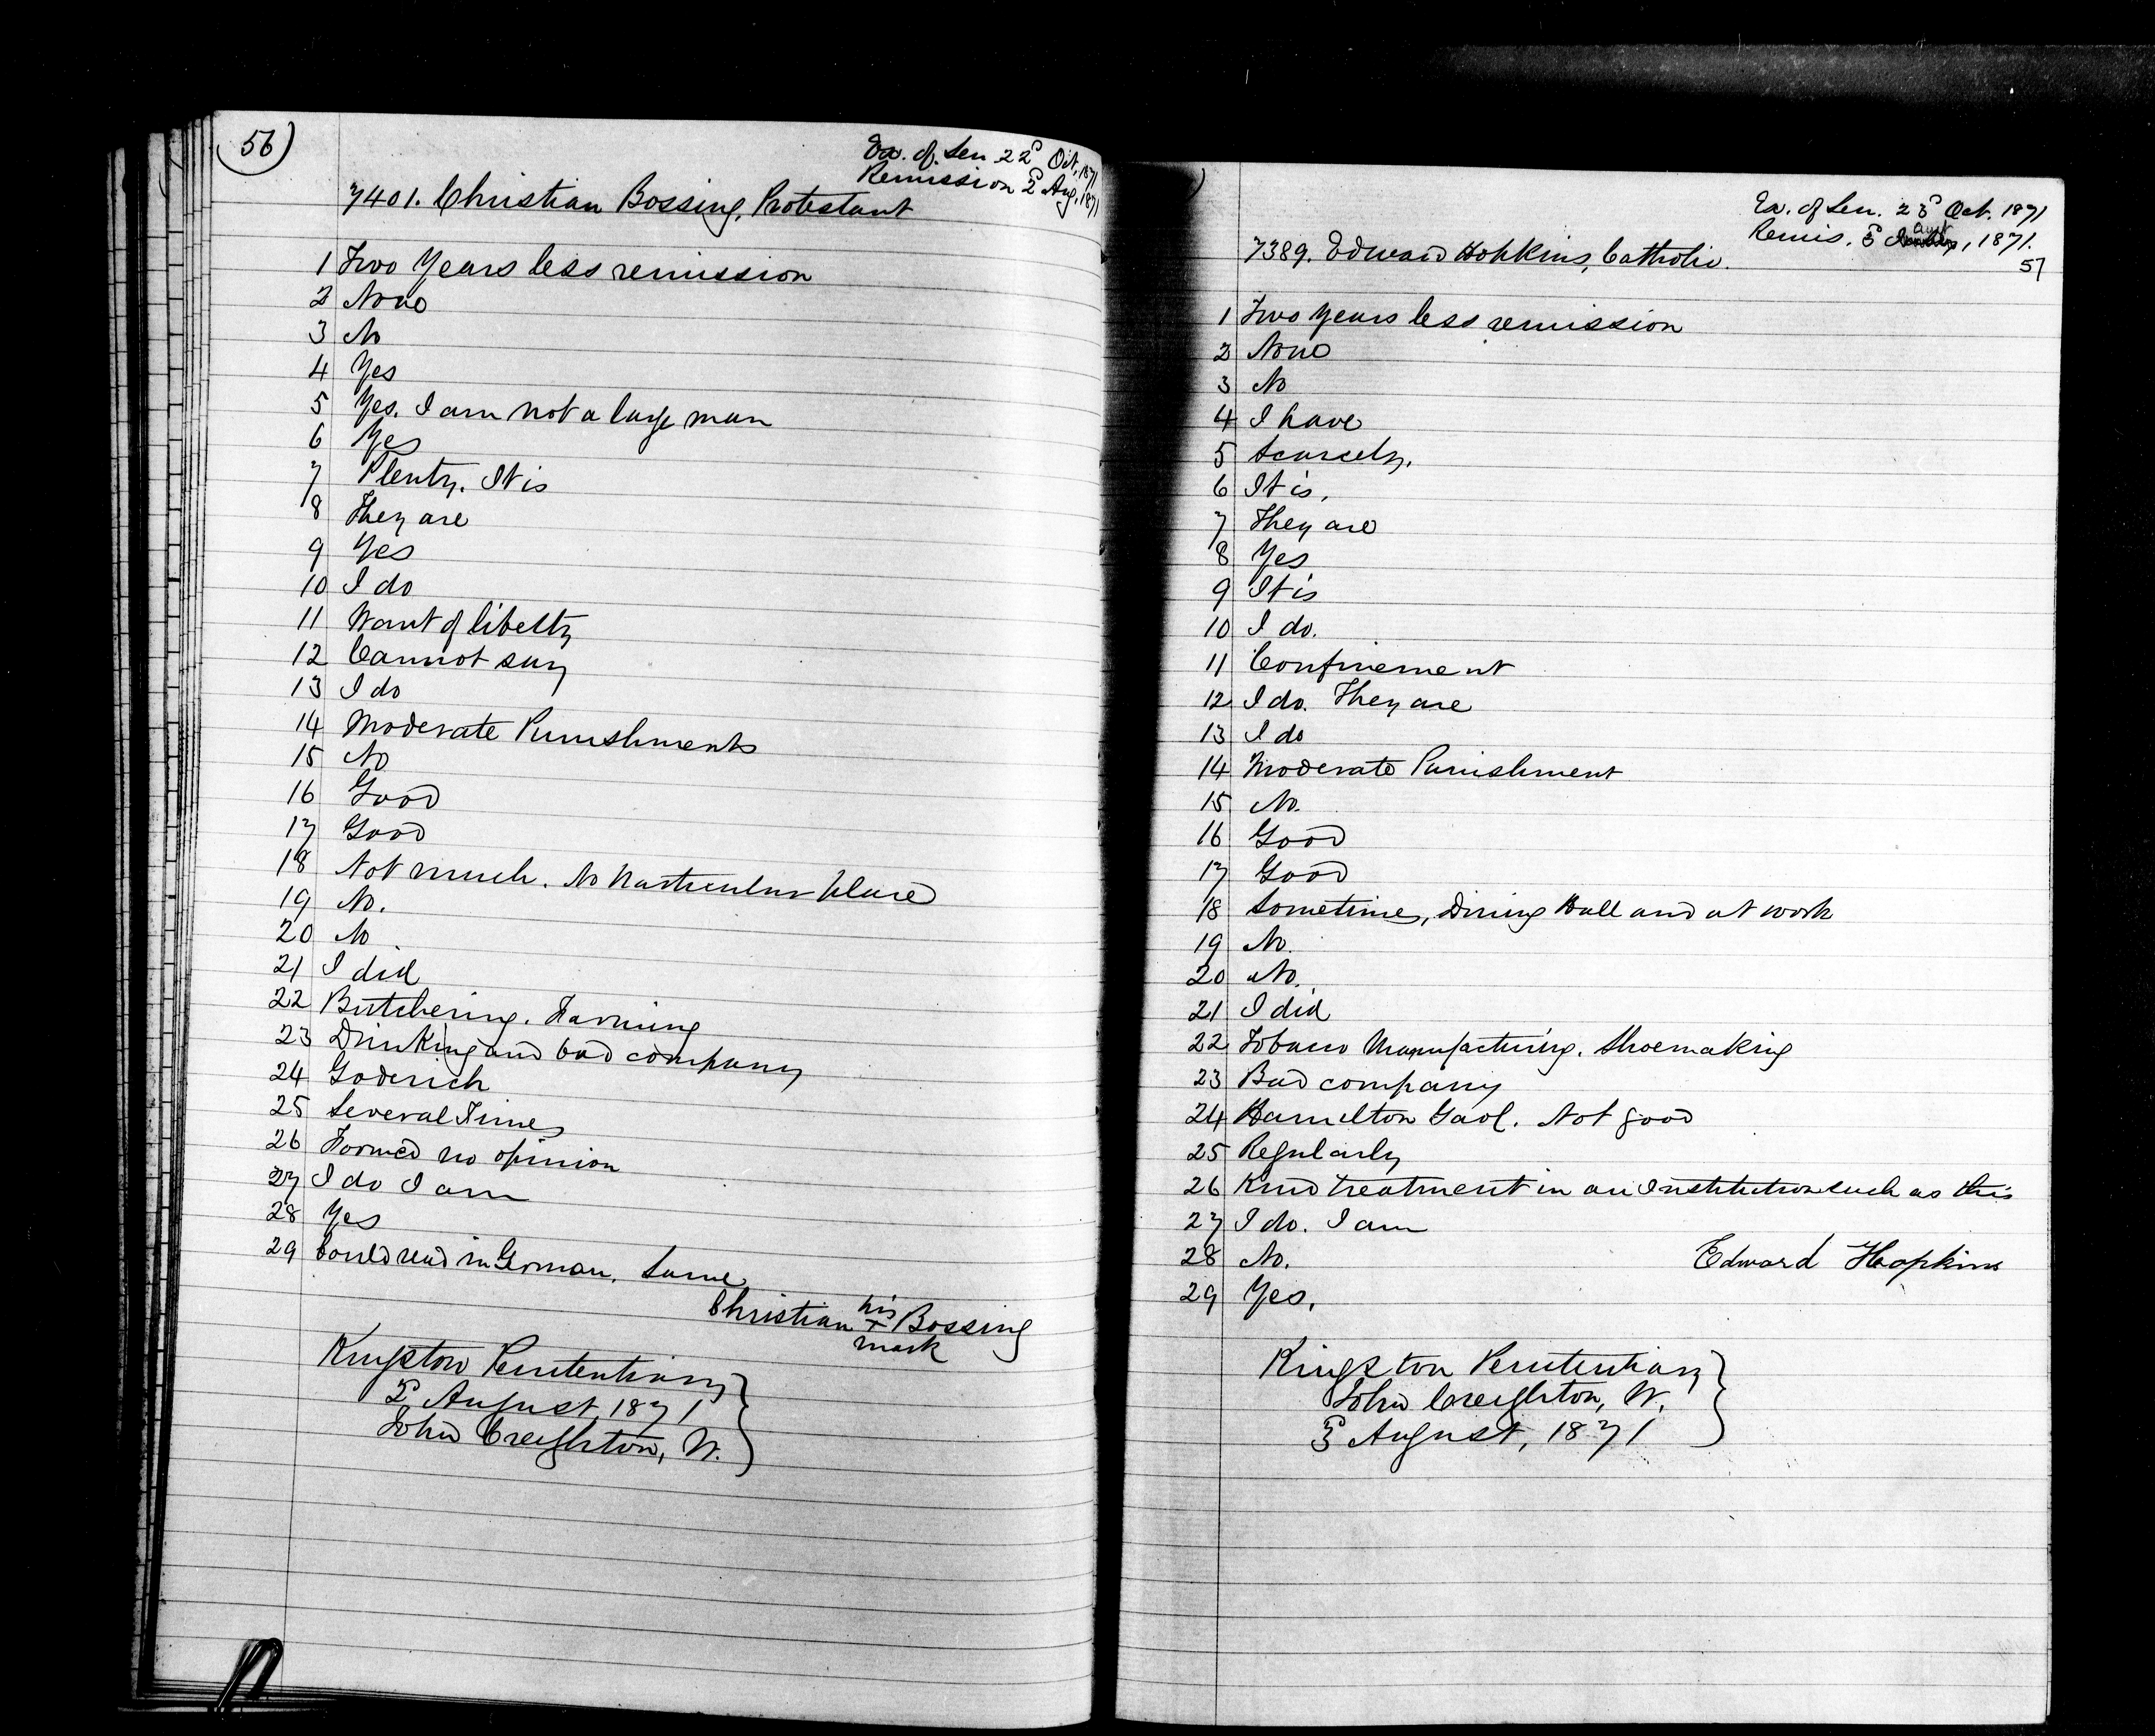 56)
Ex. of Sen 22d Oct, 1871
Remission 2d Aug, 1871
7401. Christian Bossing, Protestant
1 Two Years less remission
2 None
3 No
4 Yes
5 Yes. I am not a large man
6 Yes
7 Plenty. It is
8 They are
9 Yes
10 I do
11 Want of liberty
12 Cannot say
13 I do
14 Moderate Punishments
15 No
16 Good
17 Good
18 Not much. No particular place
19 No.
20 No
21 I did
22 Butchering. Farming
23 Drinking and bad company
24 Goderich
25 Several Times
26 Formed no opinion
27 I do I am
28 Yes
29 Could read in German. Same
Christian his x mark Bossing
Kingston Penitentiary
2d August 1871
John Creighton, W.
Ex. of Sen. 23d Oct. 1871
Remis. 3d Augt, 1871.
57
7389. Edward Hopkins, Catholic.
1 Two years less remission
2 None
3 No
4 I have
5 Scarcely.
6 It is.
7 They are
8 Yes
9 It is
10 I do.
11 Confinement
12 I do. They are
13 I do
14 Moderate Punishment
15 No.
16 Good
17 Good
18 Sometimes, Dining Hall and at work
19 No.
20 No.
21 I did
22 Tobacco Manufacturing. Shoemaking
23 Bad company
24 Hamilton Gaol. Not good
25 Regularly
26 Kind treatment in an Institution such as this
27 I do. I am
28 No.
Edward Hopkins
29 Yes.
Kingston Penitentiary
John Creighton, W.
3d August, 1871